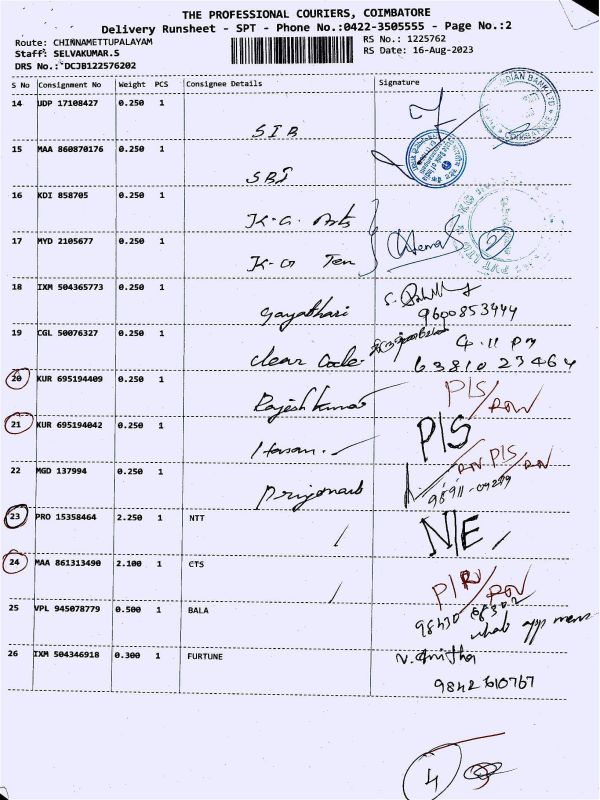 THE PROFESSIONAL COURIERS, COIMBATORE
Delivery Runsheet - SPT - Phone No.:0422-3505555 - Page No.:2
Route: CHINNAMETTUPALAYAM RS No.: 1225762
Staff: SELVAKUMAR.S RS Date: 16-Aug-2023
DRS No.: DCJB122576202
S No Consignment No Weight PCS Consignee Details Signature
14 UDP 17108427 0.250 1
SIB
15 MAA 860870176 0.250 1
SBI
16 KDI 858705 0.250 1
K-G. Arts
17 MYD 2105677 0.250 1
K-G Tex
18 IXM 504365773 0.250 1
Gayathari
9600853444
19 CGL 50076327 0.250 1
clear Code 4.11 pm
63810 23464
20 KUR 695194409 0.250 1 P/S
Rajesh kumar
21 KUR 695194042 0.250 1 P/S
Hasan.
22 MGD 137994 0.250 1 P/S
23 PRO 15358464 2.250 1 NTT N/E
24 MAA 861313490 2.100 1 CTS
25 VPL 945078779 0.500 1 BALA
26 IXM 504346918 0.300 1 FURTUNE V. Anitha
9842610767
4